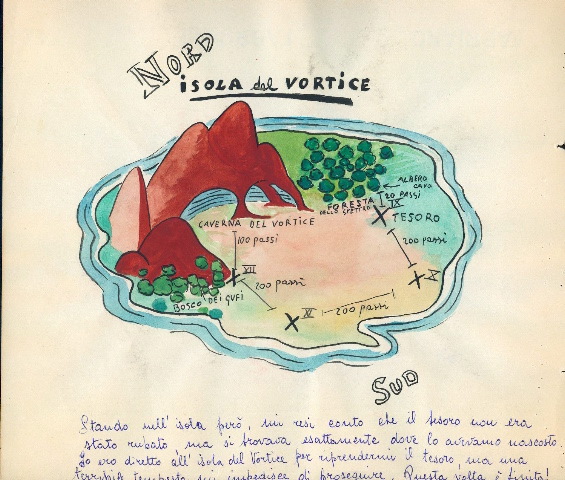 NORD
ISOLA del VORTICE
ALBERO
CAVO
20 PASSI
FORESTA
DELLO SPETTRO
IX
TESORO
CAVERNA DEL VORTICE
100 passi
200 passi
VII
X
200 passi
BOSCO DEI GUFI
XI
200 passi
SUD
Stando nell'isola però, mi resi conto che il tesoro non era
stato rubato, ma si trovava esattamente dove lo avevamo nascosto.
Io ero diretto all'isola del Vortice per riprendermi il tesoro, ma una
terribile tempesta mi impedisce di proseguire. Questa volta è finita!